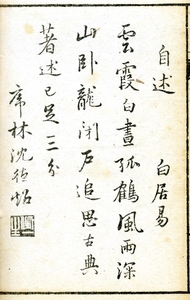 自述 白居易
雲霞白晝孤鶴風雨深
山臥龍閉戶追思古典
著述已足三分
席林沈德